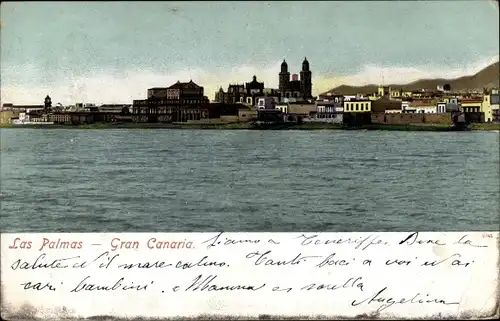 Las Palmas – Gran Canaria. Siamo a Teneriffe. Bene la
salute ed il mare calmo. Tanti baci a voi ed ai
cari bambini, e Mamma e sorella
Angelina